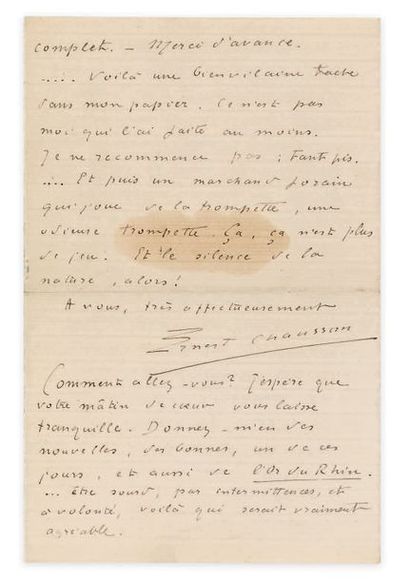 complet. — Merci d'avance.
..... Voilà une bien vilaine tache
dans mon papier. Ce n'est pas
moi qui l'ai faite au moins.
Je ne recommence pas ; tant pis.
.... Et puis un marchand forain
qui joue de la trompette, une
odieuse trompette. Ça, ça n'est plus
de jeu. Et le silence de la
nature, alors!
A vous, très affectueusement
Ernest Chausson
Comment allez-vous? J'espère que
votre mâtin de cœur vous laisse
tranquille. Donnez-m'en des
nouvelles, des bonnes, un de ces
jours, et aussi de l'Or du Rhin.
... être sourd, par intermittences, et
à volonté, voilà qui serait vraiment
agréable.